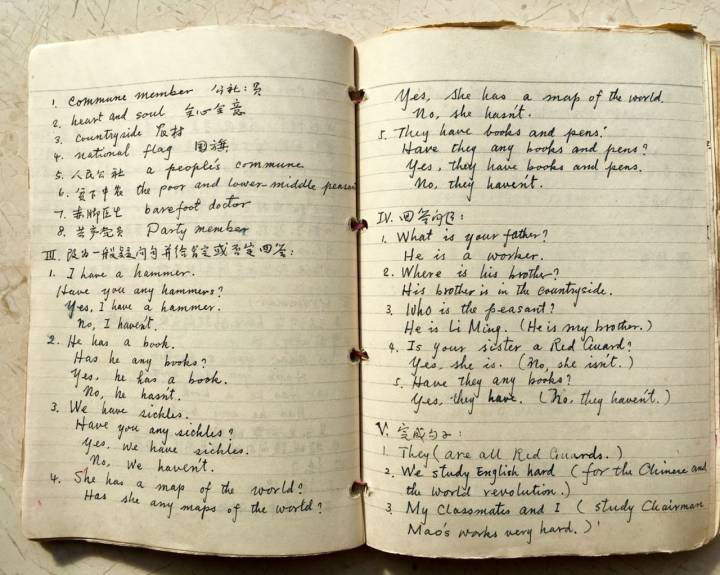 1. Commune member 公社社员
2. heart and soul 全心全意
3. countryside 农村
4. national flag 国旗
5. 人民公社 a people's commune
6. 贫下中农 the poor and lower-middle peasan
7. 赤脚医生 barefoot doctor
8. 共产党员 Party member
III. 改为一般疑问句并给肯定或否定回答:
1. I have a hammer.
Have you any hammers?
Yes, I have a hammer.
No, I haven't.
2. He has a book.
Has he any books?
Yes, he has a book.
No, he hasn't.
3. We have sickles.
Have you any sickles?
Yes, we have sickles.
No, we haven't.
4. She has a map of the world?
Has she any maps of the world?
Yes, she has a map of the world.
No, she hasn't.
5. They have books and pens.
Have they any books and pens?
Yes, they have books and pens.
No, they haven't.
IV. 回答问句:
1. What is your father?
He is a worker.
2. Where is his brother?
His brother is in the countryside.
3. Who is the peasant?
He is Li Ming. (He is my brother.)
4. Is your sister a Red Guard?
Yes, she is. (No, she isn't.)
5. Have they any books?
Yes, they have. (No, they haven't.)
V. 完成句子:
1. They (are all Red Guards.)
2. We study English hard (for the Chinese and
the world revolution.)
3. My Classmates and I (study Chairman
Mao's works very hard.)